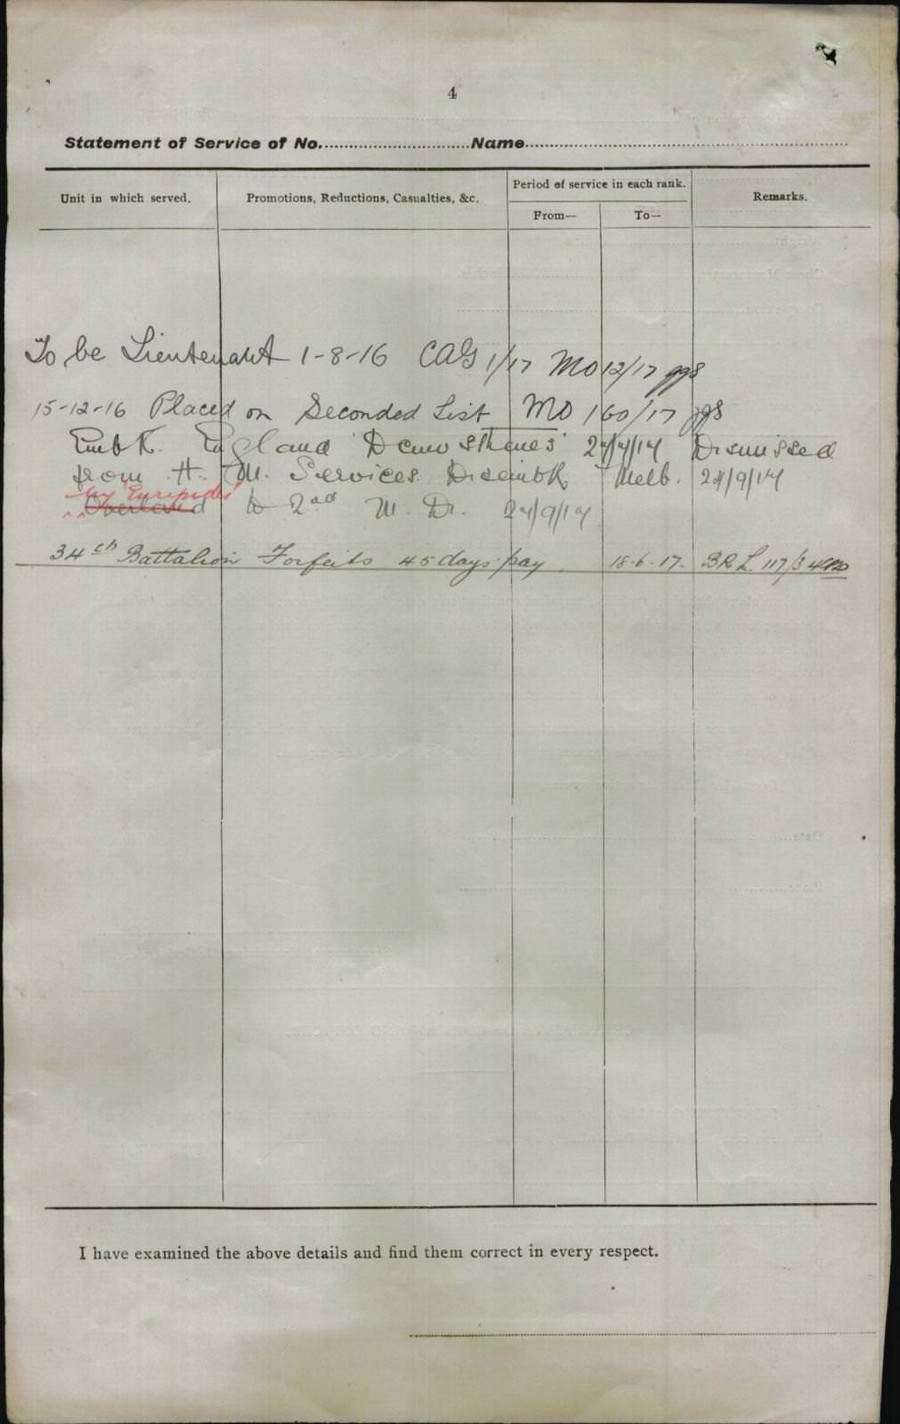 4
Statement of Service of No. Name
Unit in which served. Promotions, Reductions, Casualties, &c. Period of service in each rank. Remarks.
From— To—
To be Lieutenant 1-8-16 CAG 1/17 MO 12/17
15-12-16 Placed on Seconded List MO 160/17
Embk. England Demosthenes 24/7/17 Dismissed
from H. M. Services Disembk Melb. 24/9/17
by Euripides
Overland to 2nd M. D. 24/9/17
34th Battalion Forfeits 45 days pay 18-6-17. BRL 117/3
I have examined the above details and find them correct in every respect.